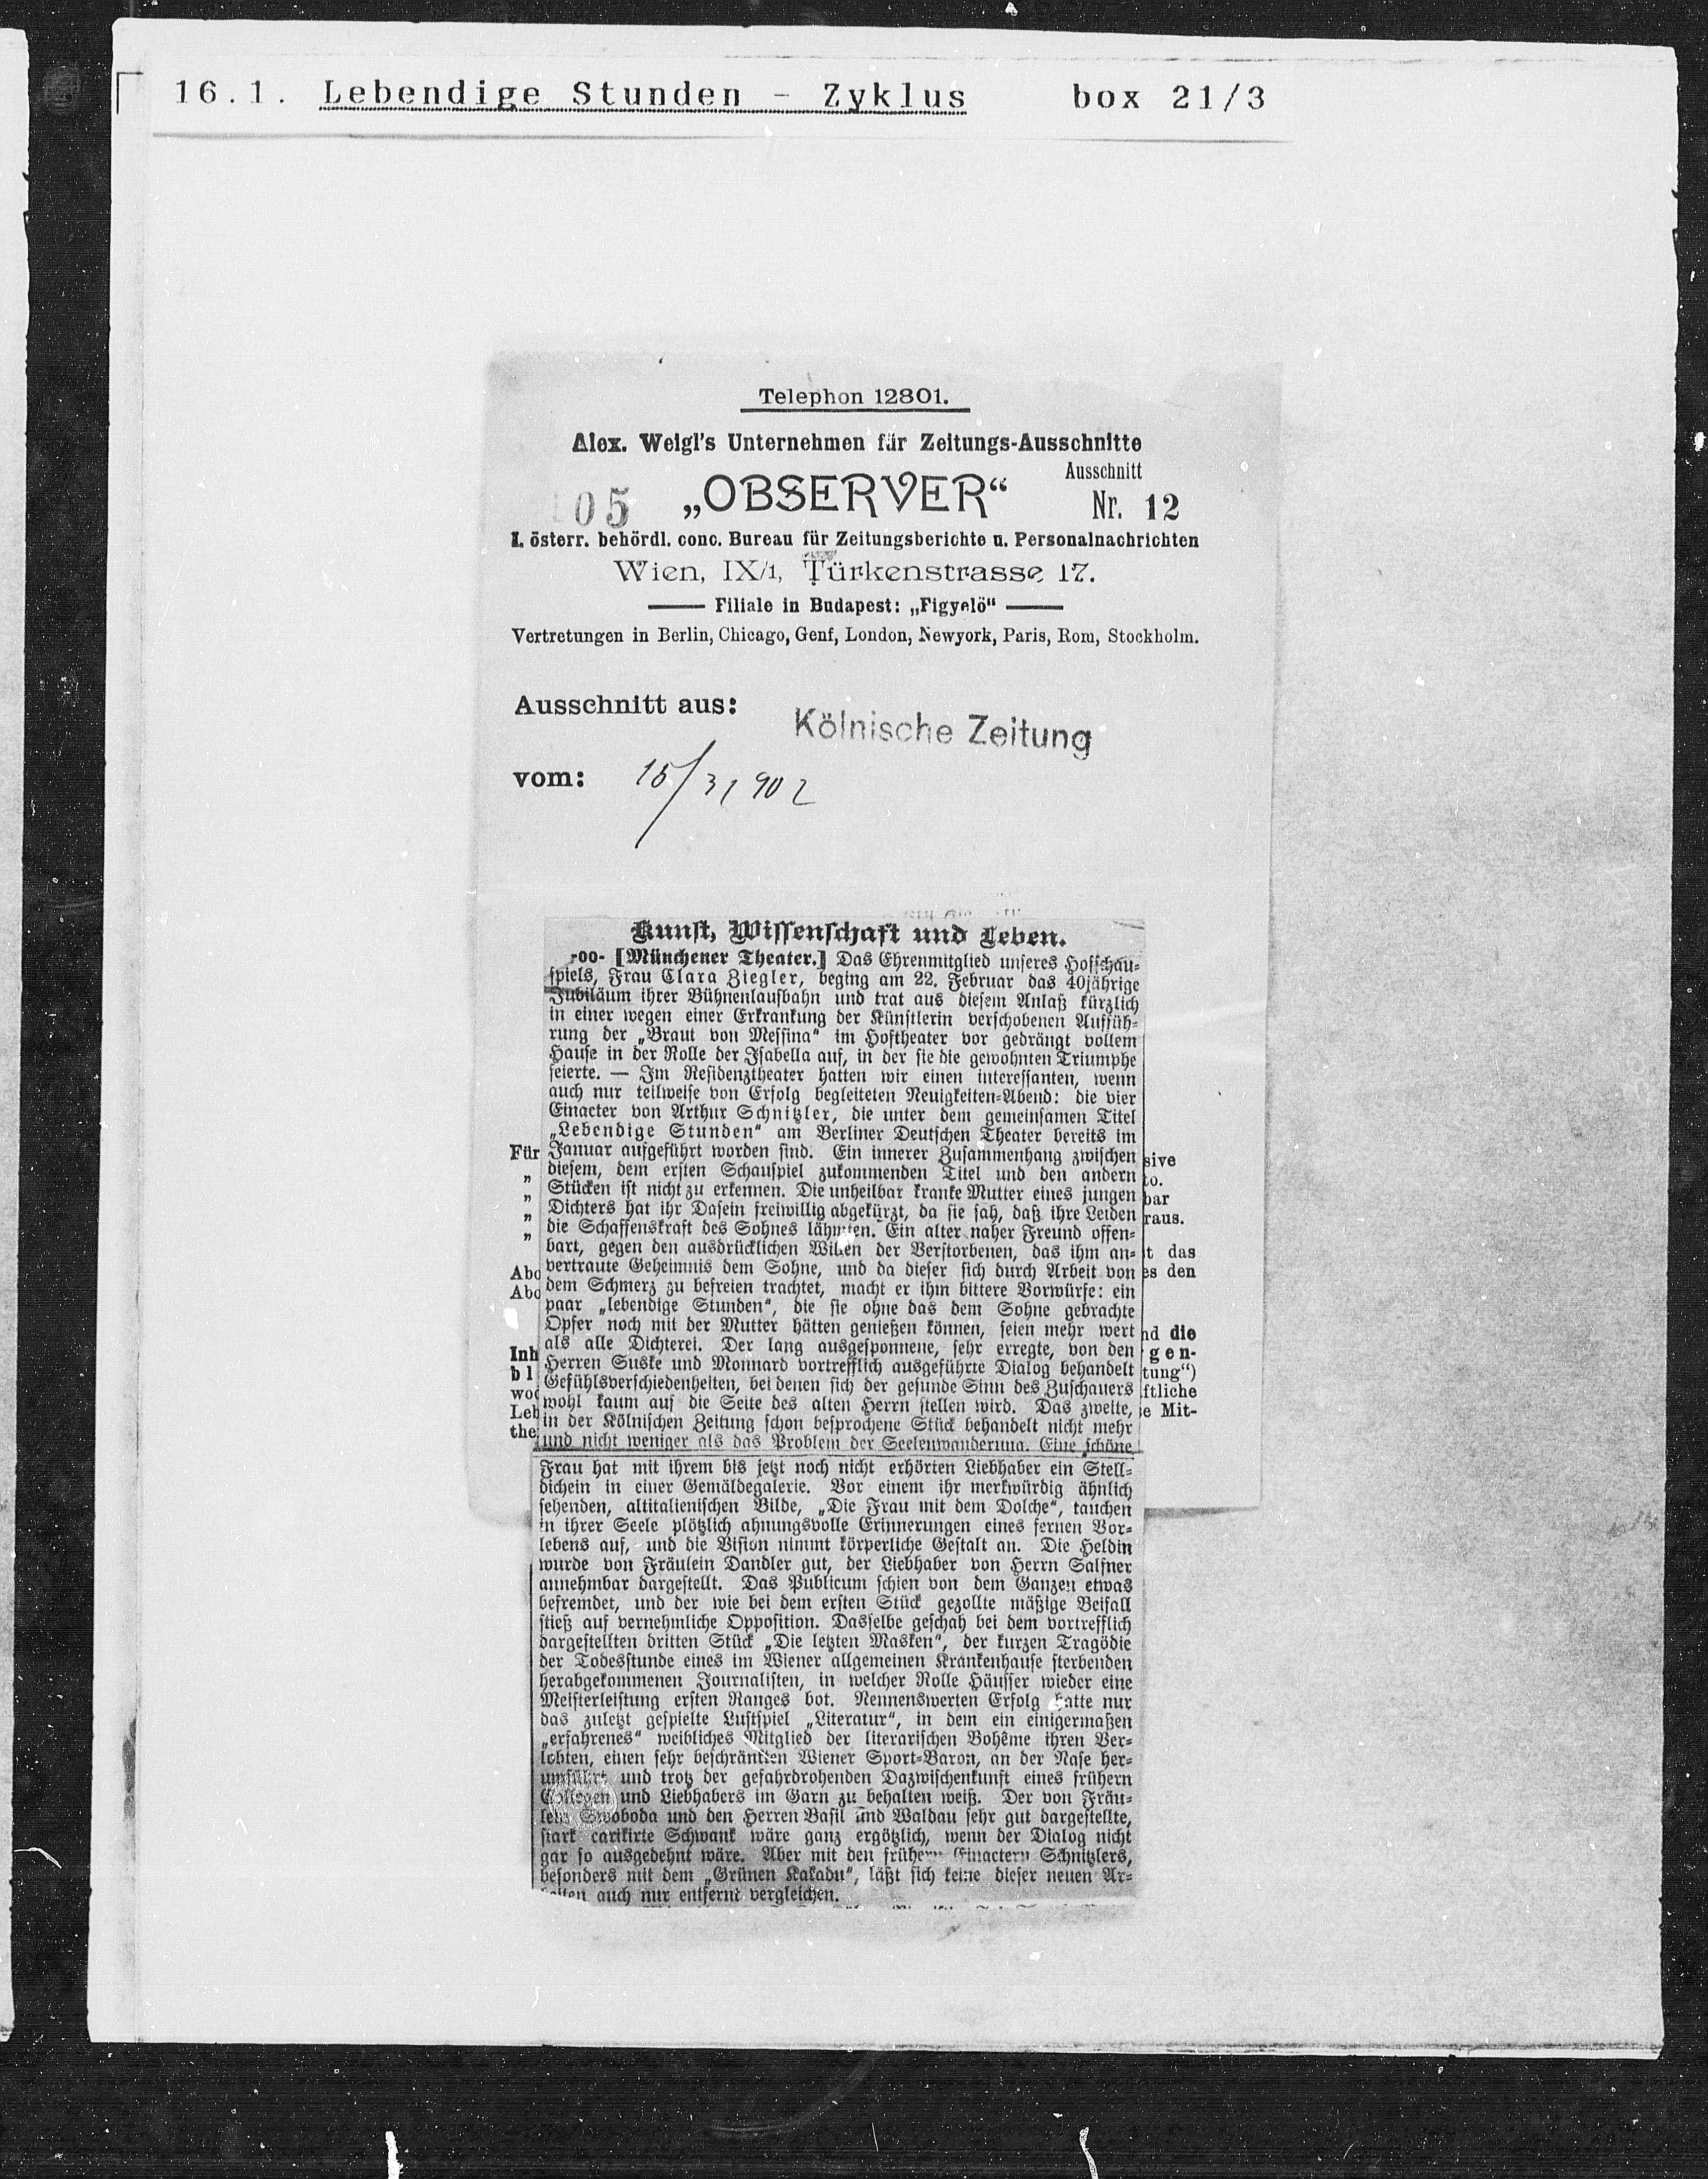 16.1. Lebendige Stunden - Zyklus box 21/3
Telephon 12801.
Alex. Weigl's Unternehmen für Zeitungs-Ausschnitte
Ausschnitt
05 „OBSERVER“ Nr. 12
I. österr. behördl. conc. Bureau für Zeitungsberichte u. Personalnachrichten
Wien, IX/1, Türkenstrasse 17.
Filiale in Budapest: „Figyelö“
Vertretungen in Berlin, Chicago, Genf, London, Newyork, Paris, Rom, Stockholm.
Ausschnitt aus: Kölnische Zeitung
vom: 15/3 1902
Kunst, Wissenschaft und Leben.
-oo- [Münchener Theater.] Das Ehrenmitglied unseres Hofschau-
spiels, Frau Clara Ziegler, beging am 22. Februar das 40jährige
Jubiläum ihrer Bühnenlaufbahn und trat aus diesem Anlaß kürzlich
in einer wegen einer Erkrankung der Künstlerin verschobenen Auffüh-
rung der „Braut von Messina“ im Hoftheater vor gedrängt vollem
Hause in der Rolle der Isabella auf, in der sie die gewohnten Triumphe
feierte. — Im Residenztheater hatten wir einen interessanten, wenn
auch nur teilweise von Erfolg begleiteten Neuigkeiten-Abend: die vier
Einacter von Arthur Schnitzler, die unter dem gemeinsamen Titel
„Lebendige Stunden“ am Berliner Deutschen Theater bereits im
Für Januar aufgeführt worden sind. Ein innerer Zusammenhang zwischen sive
„ diesem, dem ersten Schauspiel zukommenden Titel und den andern to.
„ Stücken ist nicht zu erkennen. Die unheilbar kranke Mutter eines jungen bar
„ Dichters hat ihr Dasein freiwillig abgekürzt, da sie sah, daß ihre Leiden raus.
„ die Schaffenskraft des Sohnes lähmten. Ein alter naher Freund offen-
bart, gegen den ausdrücklichen Willen der Verstorbenen, das ihm an- t das
Abo vertraute Geheimnis dem Sohne, und da dieser sich durch Arbeit von es den
Abo dem Schmerz zu befreien trachtet, macht er ihm bittere Vorwürfe: ein
paar „lebendige Stunden“, die sie ohne das dem Sohne gebrachte
Opfer noch mit der Mutter hätten genießen können, seien mehr wert nd die
Inh als alle Dichterei. Der lang ausgesponnene, sehr erregte, von den gen-
bl Herren Suske und Monnard vortrefflich ausgeführte Dialog behandelt tung“)
woc Gefühlsverschiedenheiten, bei denen sich der gesunde Sinn des Zuschauers ftliche
Leb wohl kaum auf die Seite des alten Herrn stellen wird. Das zweite, e Mit-
the in der Kölnischen Zeitung schon besprochene Stück behandelt nicht mehr
und nicht weniger als das Problem der Seelenwanderung. Eine schöne
Frau hat mit ihrem bis jetzt noch nicht erhörten Liebhaber ein Stell-
dichein in einer Gemäldegalerie. Vor einem ihr merkwürdig ähnlich
sehenden, altitalienischen Bilde, „Die Frau mit dem Dolche“, tauchen
in ihrer Seele plötzlich ahnungsvolle Erinnerungen eines fernen Vor-
lebens auf, und die Vision nimmt körperliche Gestalt an. Die Heldin
wurde von Fräulein Dandler gut, der Liebhaber von Herrn Salfner
annehmbar dargestellt. Das Publicum schien von dem Ganzen etwas
befremdet, und der wie bei dem ersten Stück gezollte mäßige Beifall
stieß auf vernehmliche Opposition. Dasselbe geschah bei dem vortrefflich
dargestellten dritten Stück „Die letzten Masken“, der kurzen Tragödie
der Todesstunde eines im Wiener allgemeinen Krankenhause sterbenden
herabgekommenen Journalisten, in welcher Rolle Häusser wieder eine
Meisterleistung ersten Ranges bot. Nennenswerten Erfolg hatte nur
das zuletzt gespielte Lustspiel „Literatur“, in dem ein einigermaßen
„erfahrenes“ weibliches Mitglied der literarischen Bohême ihren Ver-
lobten, einen sehr beschränkten Wiener Sport-Baron, an der Nase her-
umführt und trotz der gefahrdrohenden Dazwischenkunft eines frühern
Collegen und Liebhabers im Garn zu behalten weiß. Der von Fräu-
lein Swoboda und den Herren Basil und Waldau sehr gut dargestellte,
stark carikirte Schwank wäre ganz ergötzlich, wenn der Dialog nicht
gar so ausgedehnt wäre. Aber mit den frühern Einactern Schnitzlers,
besonders mit dem „Grünen Kakadu“, läßt sich keine dieser neuen Ar-
beiten auch nur entfernt vergleichen.